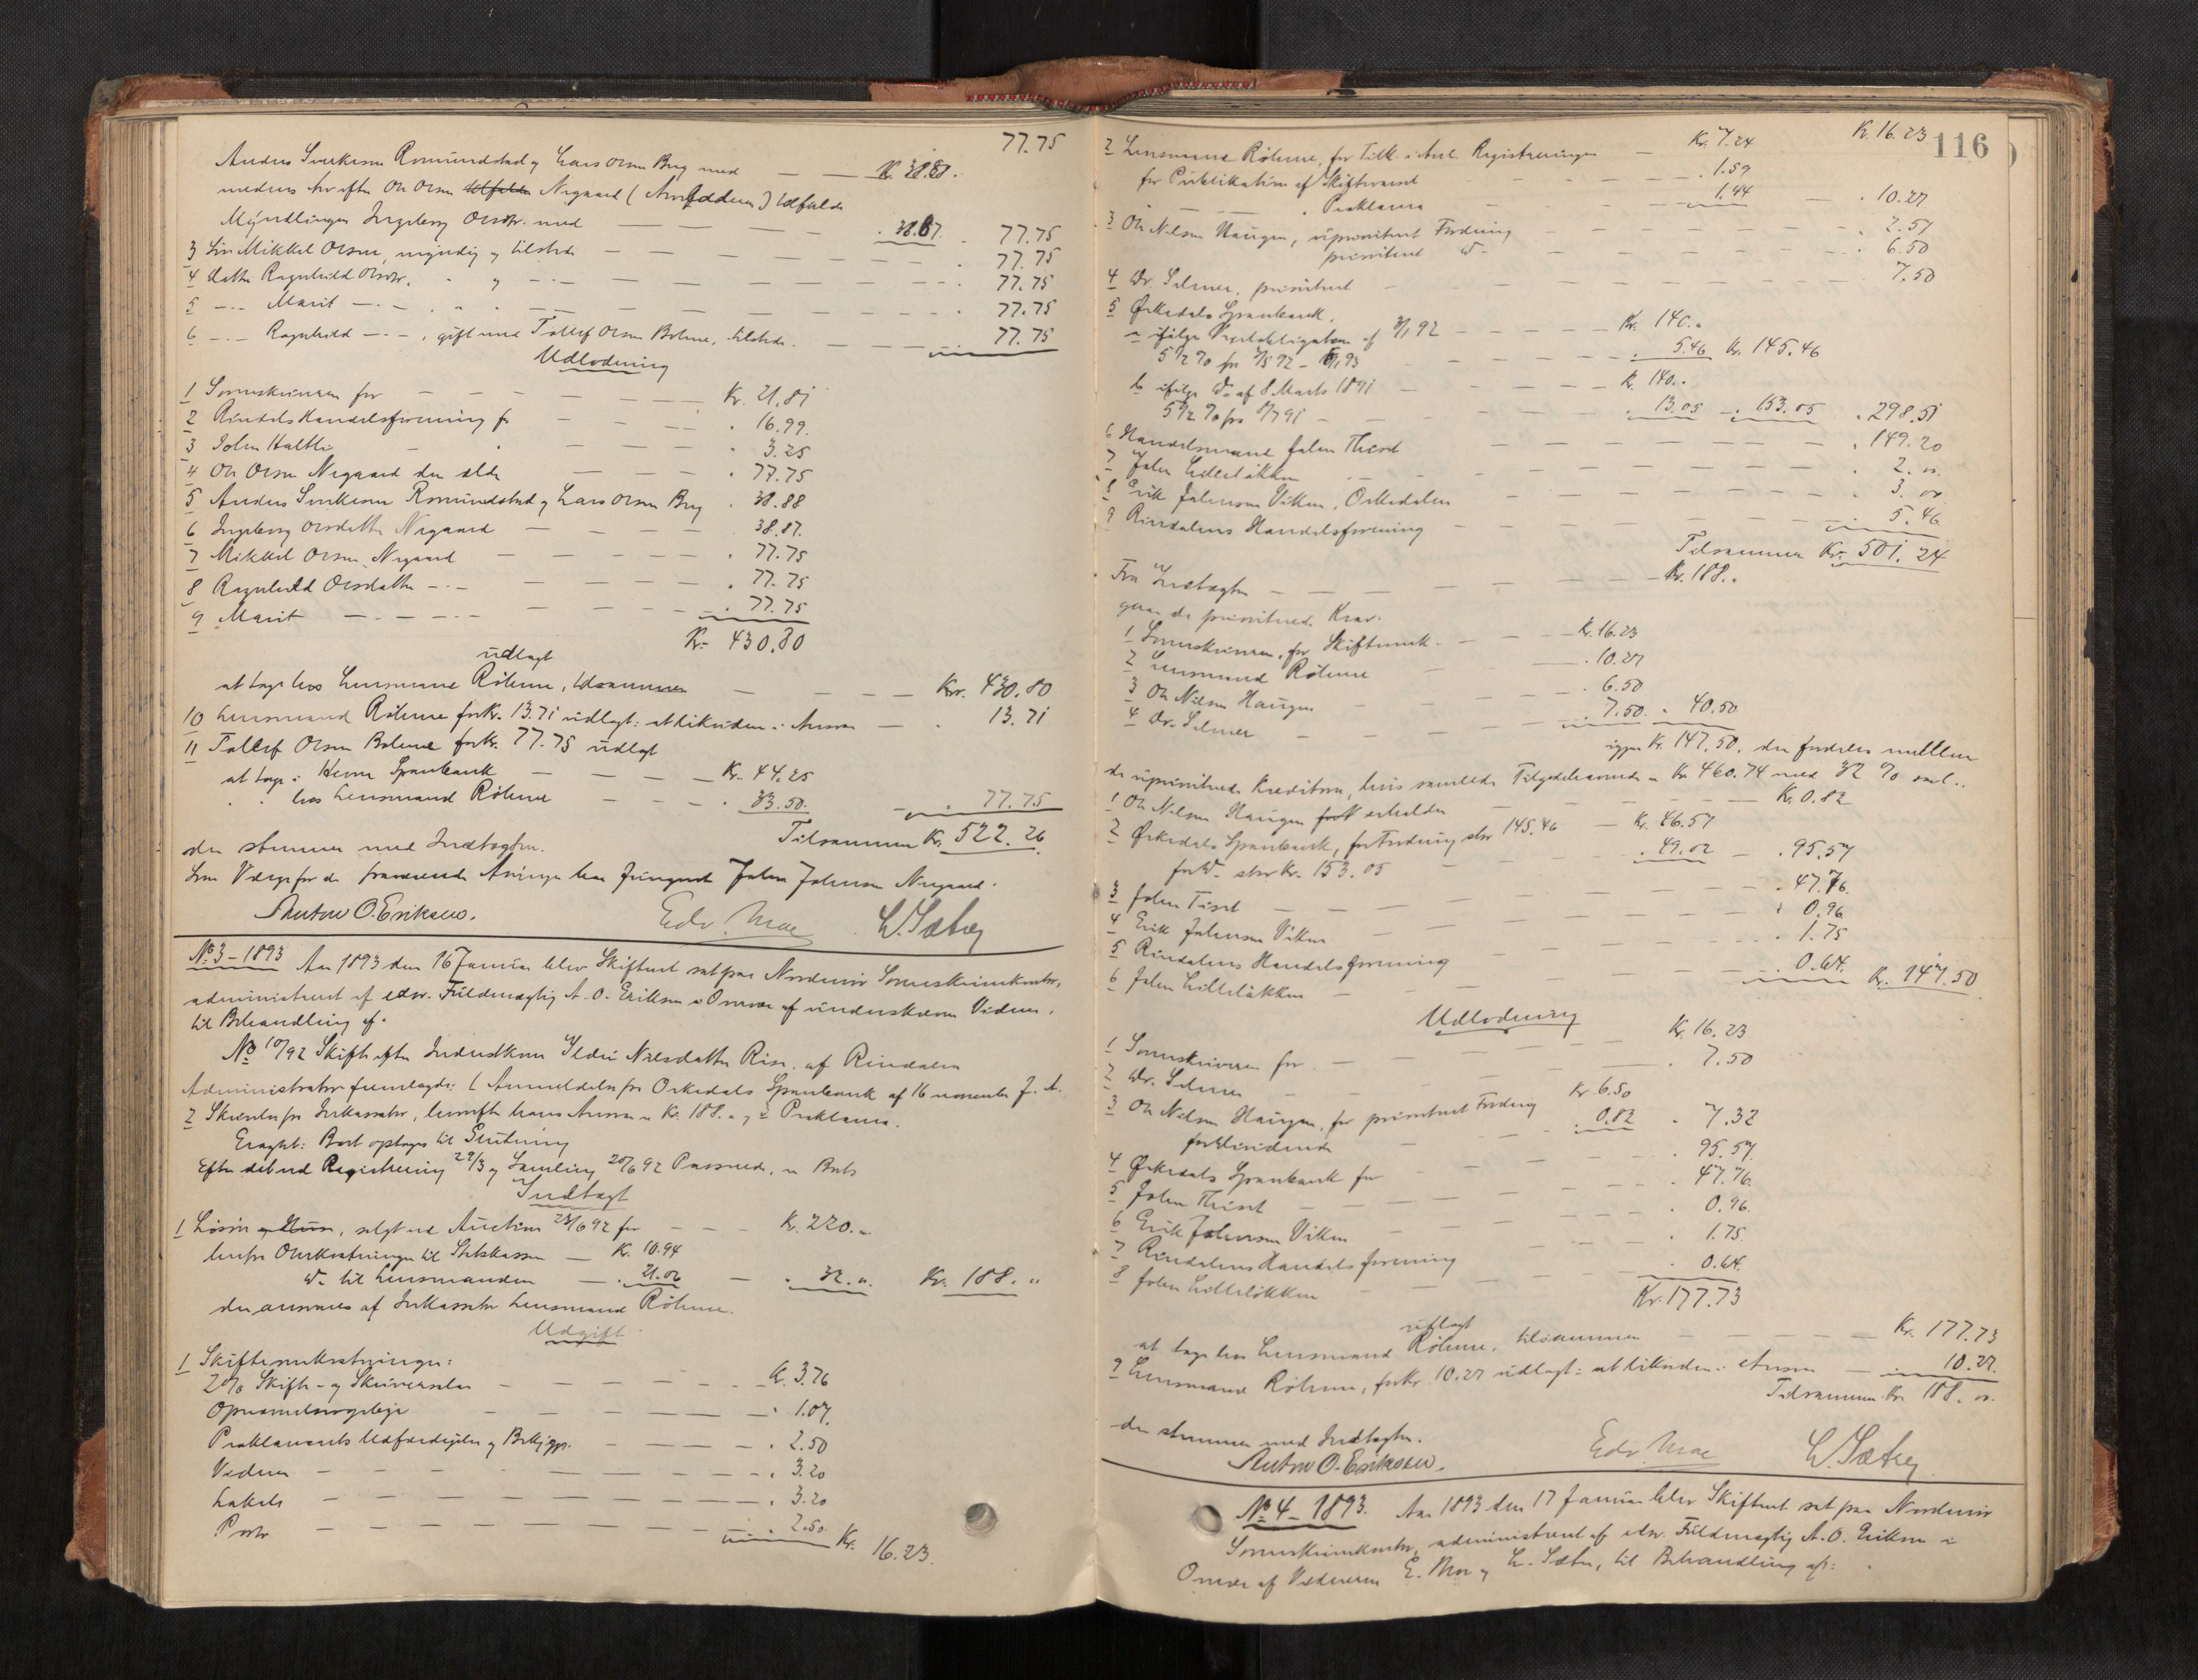 77.75
Anders Sverkesen Romundstad og Lars Olsen Berg med — — K. 38.88.
medens Arv efter Ole Olsen Nergaard ( ) tilfalder
Myndlingen Ingeborg Olsdtr. med — — — — . 38.87. . 77.75
3 Søn Mikkel Olsen, myndig og tilstede — — — — . 77.75
4 datter Ragnhild Olsdtr. . og — . — — — — 77.75
5 — . . Marit — . — . . . — — — — 77.75
6 — . — Ragnhild — . — , gift med Tollef Olsen Bolme, tilstede. — — — 77.75
Udlodning
1 Sorenskriveren for — — — — Kr. 21.81
2 Rindals Handelsforening for — — — . 16.99.
3 John Haltli — . . 3.25
4 Ole Olsen Nergaard den ældre — — — . 77.75
5 Anders Sverkesen Romundstad og Lars Olsen Berg . 38.88
6 Ingeborg Olsdatter Nergaard — — — 38.87.
7 Mikkel Olsen Nergaard — — — — . 77.75
8 Ragnhild Olsdatter — . — — — — . 77.75
9 Marit — . — . — — — — . 77.75
Kr. 430.80
udlagt
at tage hos Lensmand Rølume, tilsammen — — — — Kr. 430.80
10 Lensmand Rølume for Kr. 13.71 udlagt: at likvidere i Ansvar — . 13.71
11 Tollef Olsen Bolme for Kr. 77.75 udlagt
at tage i Hevne Sparebank — — — Kr. 44.25
. . hos Lensmand Rølume — — — . 33.50. — . 77.75
Tilsammen Kr. 522.26
der stemmer med Indtægten.
Som Værge for de fraværende Arvinger har fungeret John Johnsen Nergaard.
Anton O. Eriksen. Edv. Moe L. Sæter
No 3 – 1893 Aar 1893 den 16 Januar blev Skifteret sat paa Nordmør Sorenskriverkontor,
administreret af edsv. Fuldmægtig A. O. Eriksen i Overvær af underskrevne Vidner.
til Behandling af.
No 10/92 Skifte efter Inderstkone Nilsdatter Rise af Rindalen
Administrator fremlagde: 1 Anmeldelse fra Orkedals Sparebank af 16 november f. A.
2 Skrivelse fra Inkassator, hvorefter hans Ansvar er Kr. 188. „ og 3 Proklama.
Eragtet: Boet optages til Slutning
Efter debnd Registrering 29/3 og Samling 20/6 92 Passered. er Boets
Indtægt
1 Løsøre og Huse, solgt ved Auction 23/6 92 for — — — K. 220. „
herfra Omkostninger til Statskassen — K. 10.94
Do til Lensmanden — . 21.06 — . 32. „ Kr. 188. „
der ansvares af Inkassator Lensmand Rølume.
Udgift
1 Skifteomkostninger:
2% Skifte- og Skriversalær — — — — K. 3.76
Opraabelsesgebyr — — — — . 1.07.
Proklamaets Udfærdigelse og Bekjgjr. — — — — . 2.50
Vidner — — — — — . 3.20
Lakels — — — — — . 3.20
Porto — — — — — . 2.50 Kr. 16.23.
116
K. 16.23
2 Lensmand Rølume, for Tilk. i Anl. Registreringen — Kr. 7.24
for Publikation af Skiftevarsel — — — . 1.59
— — . Proklama — — — . 1.44 — . 10.27
3 Ole Nilsen Haugen, uprioriteret Fordring — — — — . 2.57
prioriteret Do — — — — . 6.50
4 Dr. Selmer, prioriteret — — — — 7.50
5 Ørkedals Sparebank,
a ifølge Vexelobligation af 3/1 92 — — — — Kr. 140. „
5 1/2 % fra — . 5.46 Kr. 145.46
b ifølge Do af 8 Marts 1891 — — — K. 140. „
5 1/2 % fra 8/7 91 — — — — . 13.05 — . 153.05 . 298.51
6 Handelsmand John Thiset — — — — . 149.20
7 John Lilleløkken — — — — . 2. „
8 Erik Johnsen Viken, Orkedalen — — — — . 3. „
9 Rindalens Handelsforening — — — — . 5.46.
Tilsammen Kr. 501.24
Fra Indtægten — — — — — Kr. 188. „
gaar de prioriterede Krav.
1 Sorenskriveren, for Skifteomk. — — — K. 16.23
2 Lensmand Rølume — — . 10.27
3 Ole Nilsen Haugen — — . 6.50
4 Dr. Selmer — — . 7.50. . 40.50
igjen Kr. 147.50, der fordeles mellem
de uprioriterede Kreditorer, hvis samlede Tilgodehavende er Kr. 460.74 med 32 % ..
1 Ole Nilsen Haugen erholder — — — — Kr. 0.82
2 Ørkedals Sparebank, for Fordring stor 145.46 — Kr. 46.57
for Do stor Kr. 153.05 . 49.02 — . 95.57
3 John Tiset — — — — . 47.76.
4 Erik Johnsen Viken — — — — . 0.96
5 Rindalens Handelsforening — — — . 1.75
6 John Lilleløkken — — — — . 0.64. Kr. 147.50
Udlodning
1 Sorenskriveren for — — — — Kr. 16.23
2 Dr. Selmer — — — — . 7.50
3 Ole Nilsen Haugen, for prioriteret Fordring Kr. 6.50
for Dividende — . 0.82 . 7.32
4 Ørkedals Sparebank for — — — . 95.57.
5 John Thiset — — — — . 47.76.
6 Erik Johnsen Viken — — — . 0.96.
7 Rindalens Handelsforening — — . 1.75.
8 John Lilleløkken — — . 0.64.
Kr. 177.73
udlagt
at tage hos Lensmand Rølume, tilsammen — — — — Kr. 177.73
9 Lensmand Rølume, for Kr. 10.27 udlagt: at likvidere i Ansvar — — . 10.27.
Tilsammen Kr. 188. „
der stemmer med Indtægten.
Anton O. Eriksen. Edv. Moe L. Sæter
No 4 – 1893. Aar 1893 den 17 Januar blev Skifteret sat paa Nordmør
Sorenskriverkontor, administreret af edsv. Fuldmægtig A. O. Eriksen i
Overvær af Vidnerne E. Moe og L. Sæter, til Behandling af: